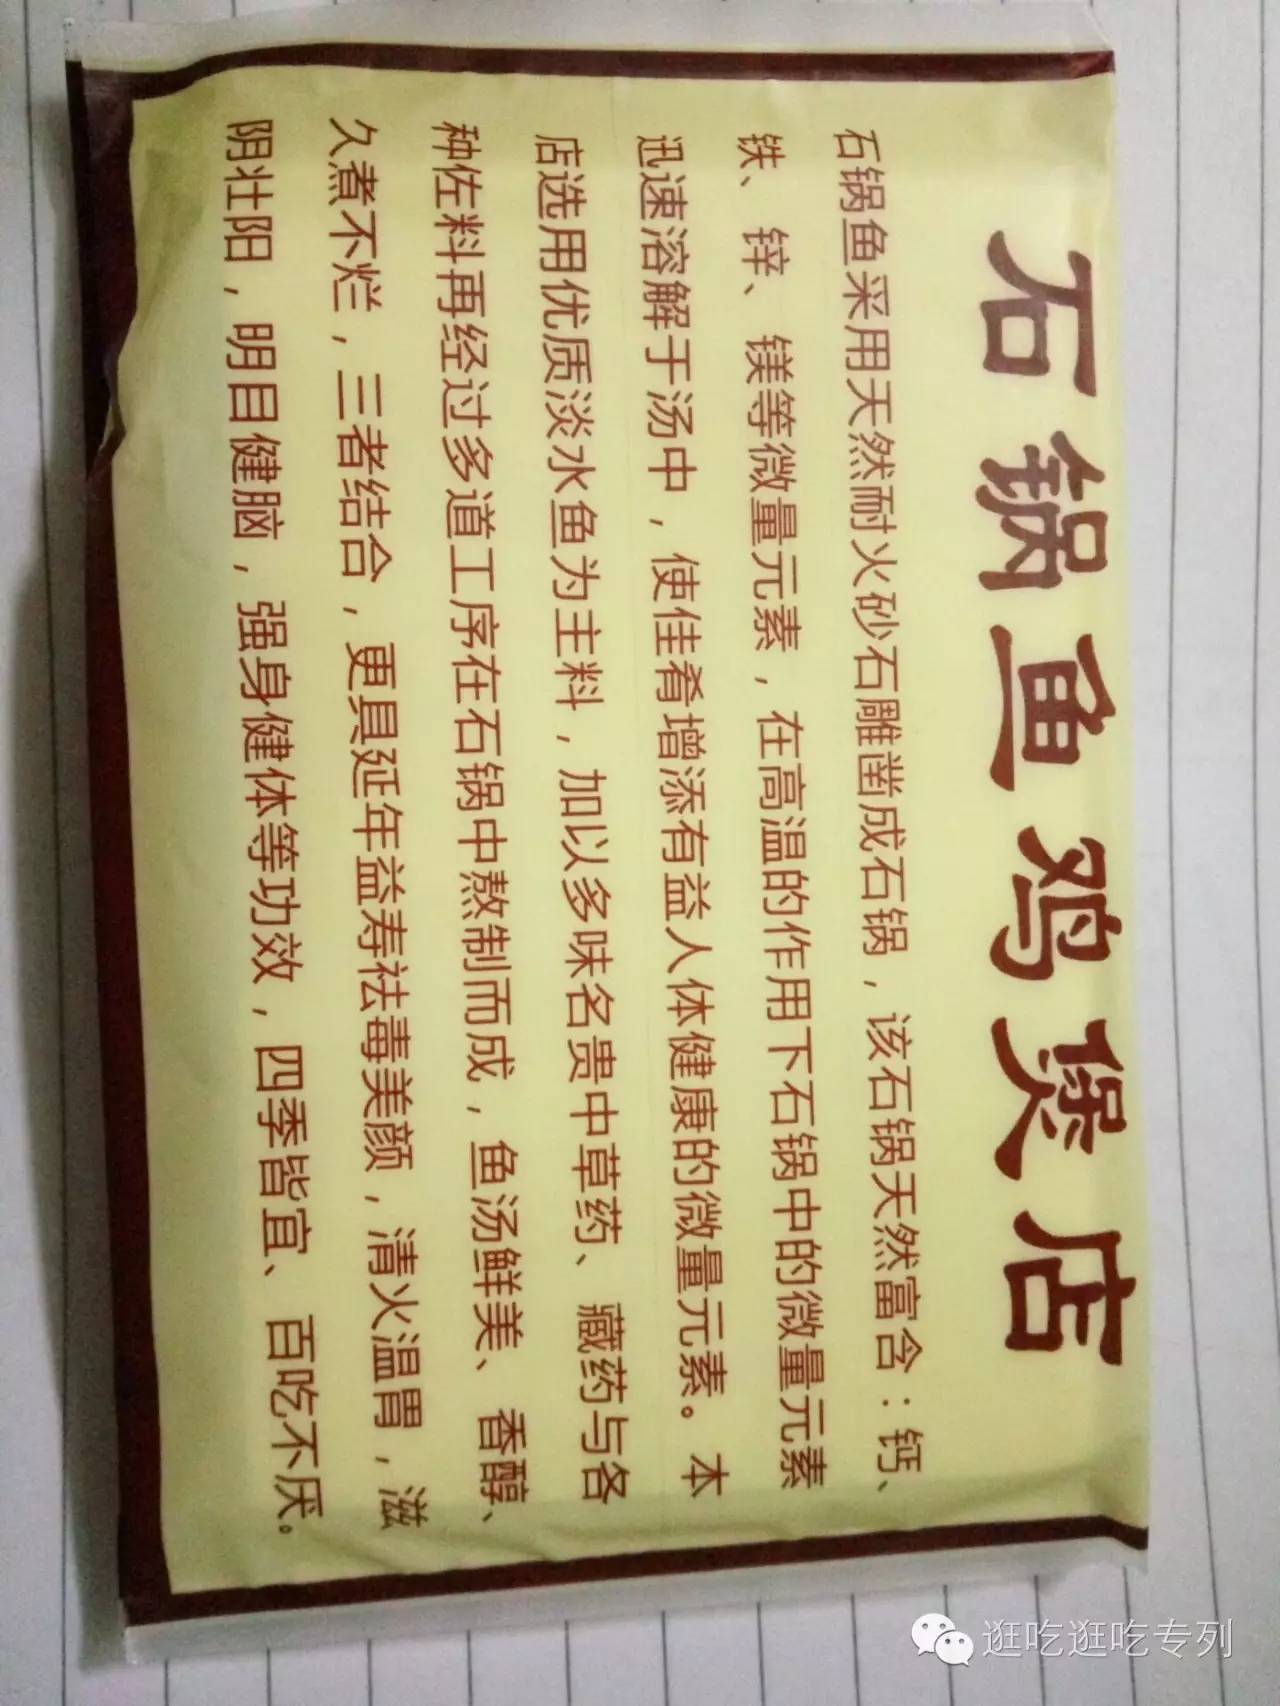 石锅鱼鸡煲店
石锅鱼采用天然耐火砂石雕凿成石锅，该石锅天然富含：钙、
铁、锌、镁等微量元素，在高温的作用下石锅中的微量元素
迅速溶解于汤中，使佳肴增添有益人体健康的微量元素。本
店选用优质淡水鱼为主料，加以多味名贵中草药、藏药与各
种佐料再经过多道工序在石锅中熬制而成，鱼汤鲜美、香醇、
久煮不烂，三者结合，更具延年益寿祛毒美颜，清火温胃，滋
阴壮阳，明目健脑，强身健体等功效，四季皆宜、百吃不厌。
逛吃逛吃专列